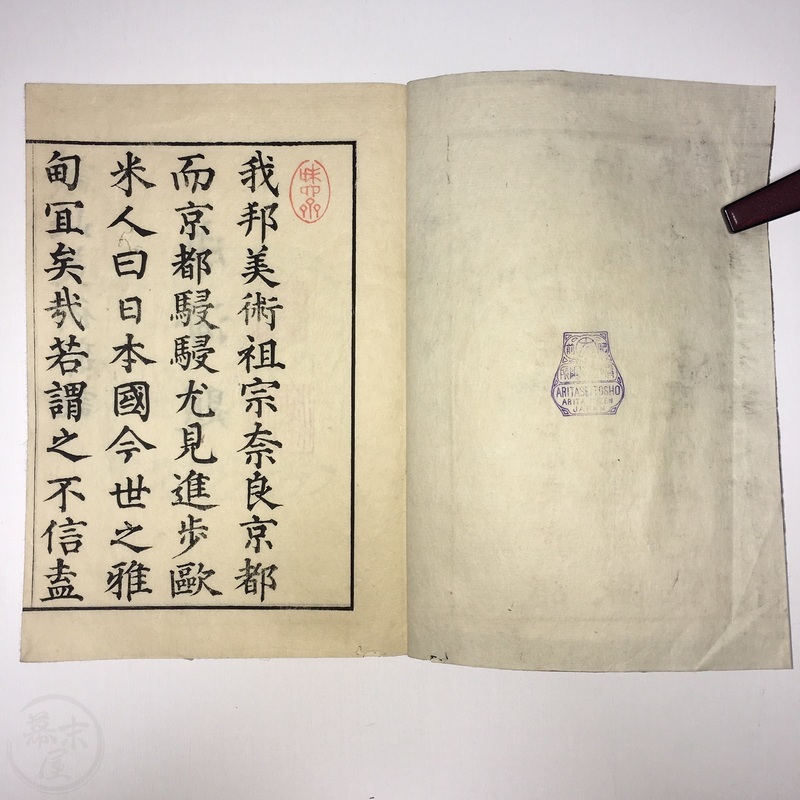 我邦美術祖宗奈良京都
而京都駸駸尤見進步歐
米人曰日本國今世之雅
甸冝矣㢤若謂之不信盍
ARITASEI
TOSHO
JAPAN
幕末屋